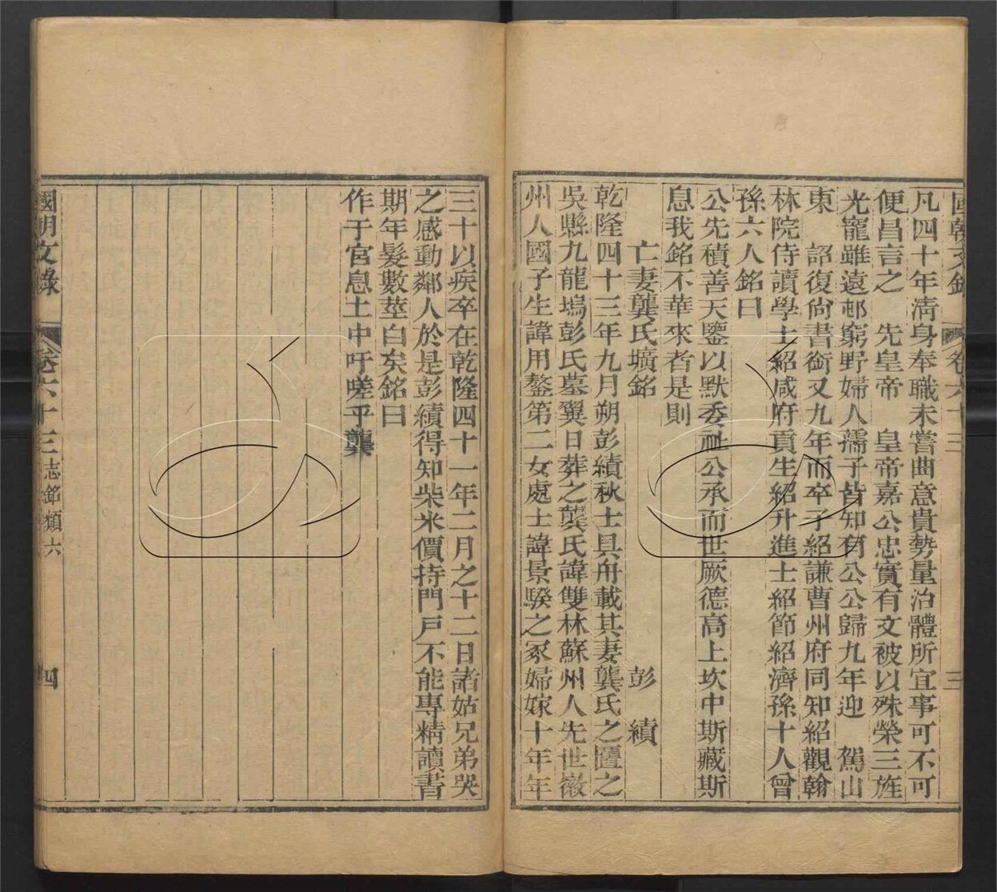 國朝文錄 卷六十三 三
凡四十年淸身奉職未嘗曲意貴勢量治體所宜事可不可
便昌言之 先皇帝 皇帝嘉公忠實有文被以殊榮三旌
光寵雖遠邨窮野婦人孺子皆知有公公歸九年迎 駕山
東 詔復尙書銜又九年而卒子紹謙曹州府同知紹觀翰
林院侍讀學士紹咸府貢生紹升進士紹節紹濟孫十人曾
孫六人銘曰
公先積善天鑒以默委祉公承而世厥德高上坎中斯藏斯
息我銘不華來者是則
亡妻龔氏壙銘 彭 績
乾隆四十三年九月朔彭績秋士具舟載其妻龔氏之匶之
吳縣九龍塢彭氏墓翼日葬之龔氏諱雙林蘇州人先世徽
州人國子生諱用鏊第二女處士諱景騤之冢婦嫁十年年
三十以疾卒在乾隆四十一年二月之十二日諸姑兄弟哭
之感動鄰人於是彭績得知柴米價持門戸不能專精讀書
期年髮數莖白矣銘曰
作于宮息土中吁嗟乎龔
國朝文錄 卷六十三 志銘類六 四